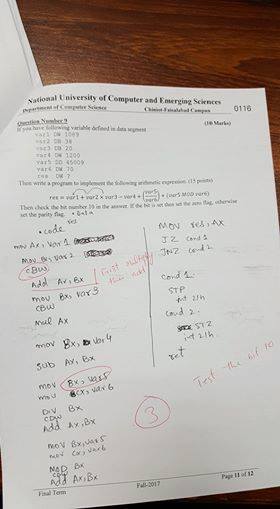 National University of Computer and Emerging Sciences
Department of Computer Science
Chiniot-Faisalabad Campus
0116
Question Number 9
(10 Marks)
If you have following variable defined in data segment
var1 DW 1089
var2 DB 38
var3 DB 20
var4 DW 1200
var5 DD 45009
var6 DW 70
res DW ?
Then write a program to implement the following arithmetic expression. (15 points)
res = var1 + var2 * var3 - var4 + [var5/var6] + (var5 MOD var6)
Then check the bit number 10 in the answer. If the bit is set then set the zero flag, otherwise
set the parity flag.
.Data
res
.code
mov Ax, Var 1
mov Bx, var 2
CBW
Add Ax, Bx
First multiply
then add
mov Bx, var3
CBW
mul Ax
mov Bx, Var4
SUB Ax, Bx
mov Bx, var5
mov Cx, var6
Div Bx
CDW
Add Ax, Bx
mov Bx, var5
mov Cx, var6
MOD Bx
Add Ax, Bx
MOV res, AX
JZ cond 1
JNZ cond 2
cond 1:
STP
int 21h
cond 2:
STZ
int 21h
ret
Test the bit 10
3
Final Term
Fall-2017
Page 11 of 12